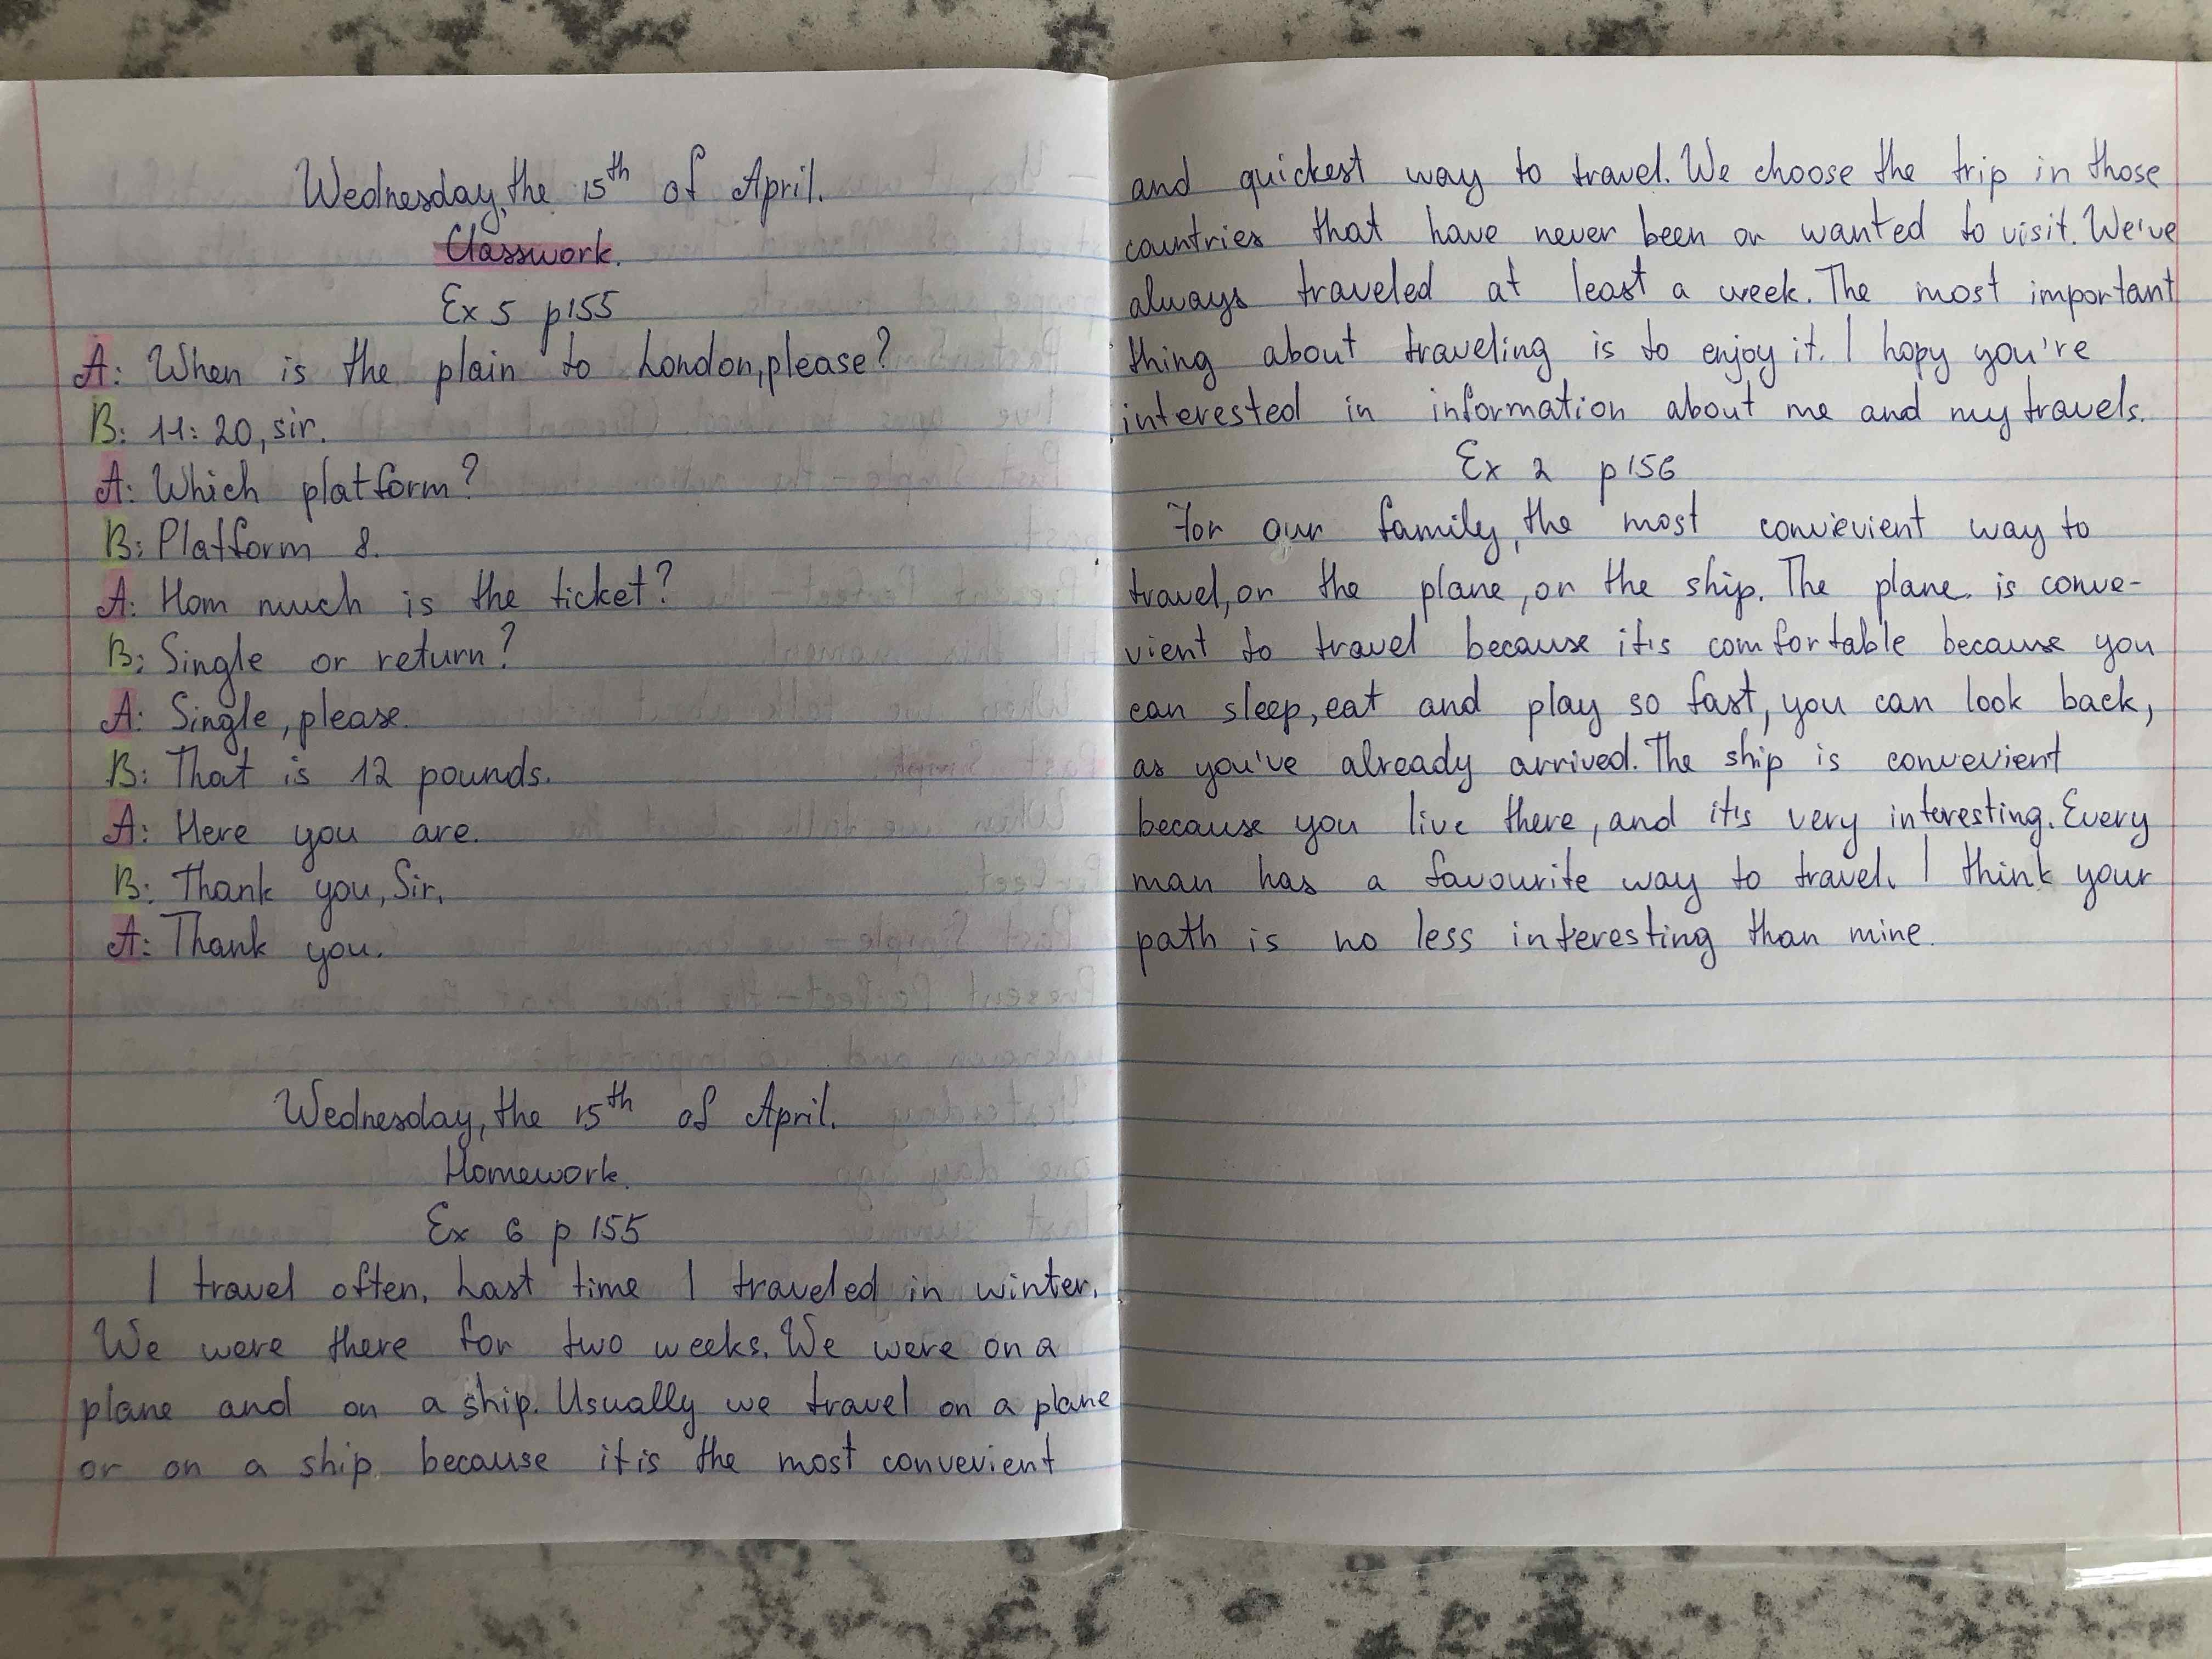 Wednesday, the 15th of April.
Classwork.
Ex 5 p155
A: When is the plain to London, please?
B: 11:20, sir.
A: Which platform?
B: Platform 8.
A: Hom much is the ticket?
B: Single or return?
A: Single, please.
B: That is 12 pounds.
A: Here you are.
B: Thank you, Sir.
A: Thank you.
Wednesday, the 15th of April.
Homework.
Ex 6 p 155
I travel often. Last time I traveled in winter.
We were there for two weeks. We were on a
plane and on a ship. Usually we travel on a plane
or on a ship because it is the most convevient
and quickest way to travel. We choose the trip in those
countries that have never been or wanted to visit. We've
always traveled at least a week. The most important
thing about traveling is to enjoy it. I hopy you're
interested in information about me and my travels.
Ex 2 p156
For our family, the most convievient way to
travel, or the plane, or the ship. The plane is conve-
vient to travel because it's comfortable because you
can sleep, eat and play so fast, you can look back,
as you've already arrived. The ship is convevient
because you live there, and it's very interesting. Every
man has a favourite way to travel. I think your
path is no less interesting than mine.